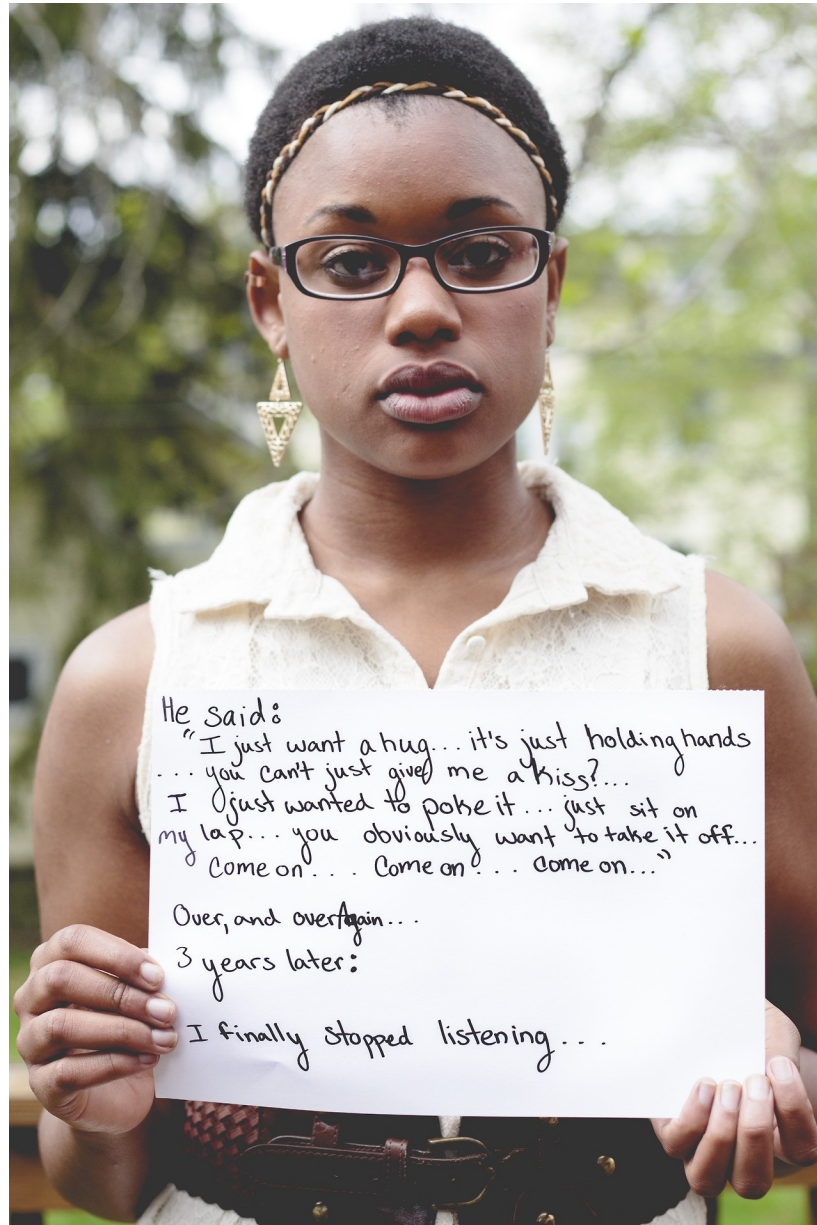 He said:
"I just want a hug... it's just holding hands
... you can't just give me a kiss?...
I just wanted to poke it... just sit on
my lap... you obviously want to take it off...
Come on... Come on... Come on..."
Over, and over Again...
3 years later:
I finally stopped listening...